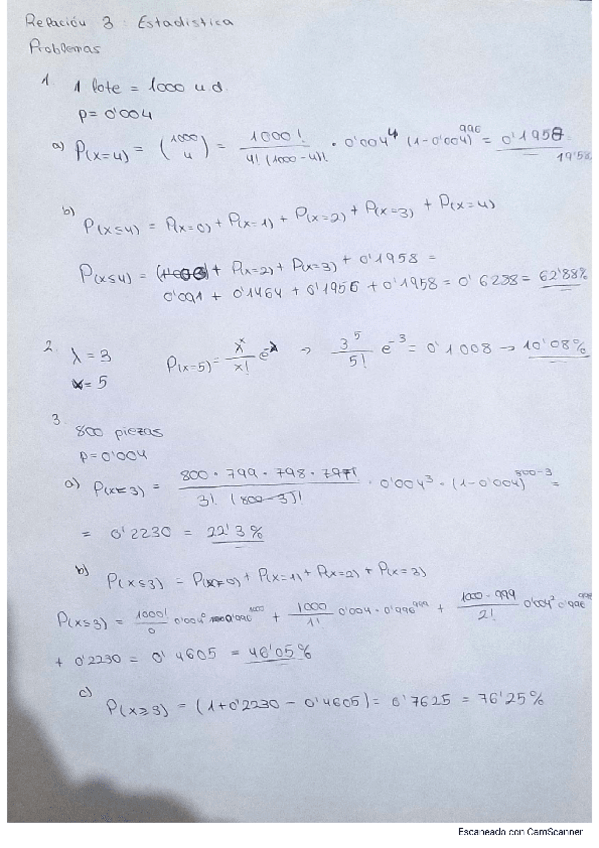 Relación 3: Estadística
Problemas
1. 1 lote = 1000 ud
p = 0'004
a) P(x=4) = (1000 4) = 1000! / 4! (1000-4)! · 0'004⁴ (1-0'004)⁹⁹⁶ = 0'1958 =
19'58
b) P(x≤4) = P(x=0) + P(x=1) + P(x=2) + P(x=3) + P(x=4)
P(x≤4) = + P(x=2) + P(x=3) + 0'1958 =
0'091 + 0'1464 + 0'1956 + 0'1958 = 0'6288 = 62'88%
2. λ = 3
x = 5
P(x=5) = λˣ / x! e^-λ → 3⁵ / 5! e⁻³ = 0'1008 → 10'08%
3.
800 piezas
p = 0'004
a) P(x=3) = 800 · 799 · 798 · 797! / 3! (800-3)! · 0'004³ · (1-0'004)⁸⁰⁰⁻³ =
= 0'2230 = 22'3%
b) P(x≤3) = P(x=0) + P(x=1) + P(x=2) + P(x=3)
P(x≤3) = 1000! / 0 0'004⁰ + 1000 / 1! 0'004 · 0'996⁹⁹⁹ + 1000 · 999 / 2! 0'004² 0'996⁹⁹⁸
+ 0'2230 = 0'4605 = 46'05%
c) P(x≥3) = (1 + 0'2230 - 0'4605) = 0'7625 = 76'25%
Escaneado con CamScanner